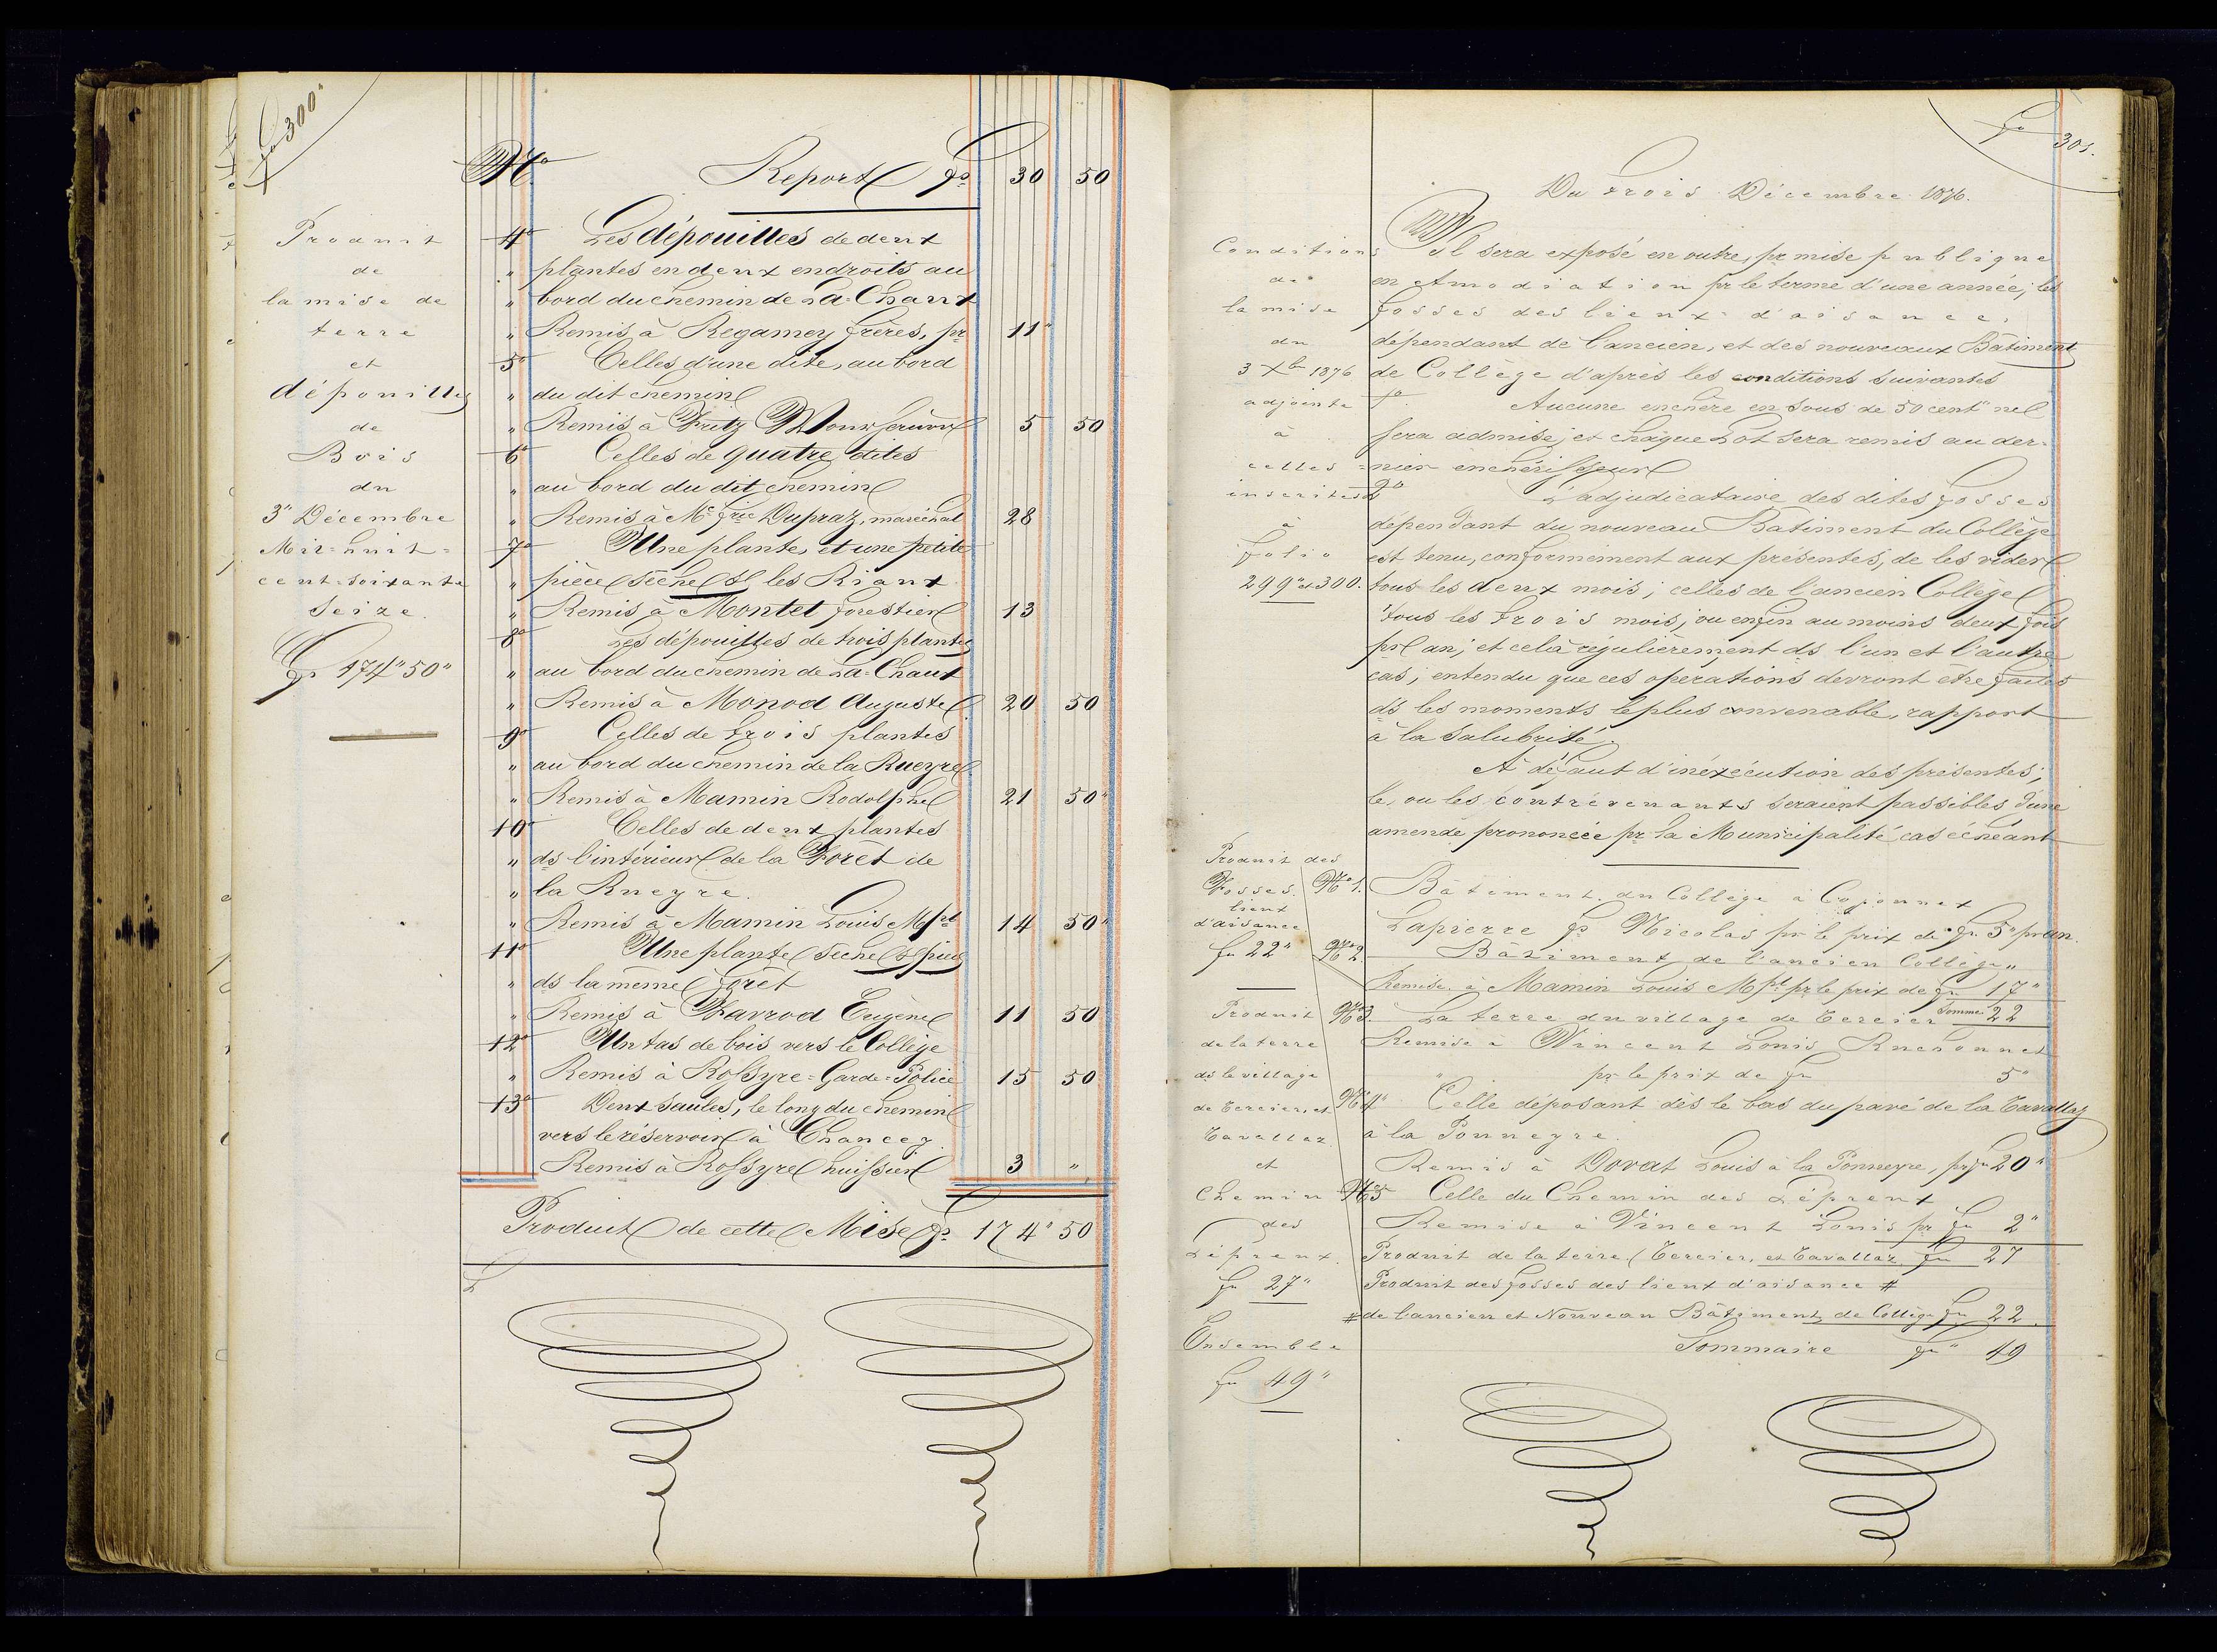 fo 300"
No Report fs 30 50
Produit
de
la mise de
terre
et
dépouilles
de
Bois
du
3" Décembre
Mil=huit=
cent=soixante
Seize.
fr 174" 50"
4o Les dépouilles de deux
" plantes en deux endroits au
" bord du chemin de La=Chaux
" Remis à Regamey frères, pr 11"
5o Celles d'une dite, au bord
" du dit chemin
" Remis à Fritz 5 50
6o Celles de quatre dites
" au bord du dit chemin
" Remis à Mc fric Dupraz, maréchal 28
7o Une plante, et une petite
" pièce sèche sr les Riaux
" Remis à Montet forestier 13
8o Les dépouilles de trois plantes
" au bord du chemin de La=Chaux
" Remis à Monod Auguste 20 50
9o Celles de trois plantes
" au bord du chemin de la Rueyre
" Remis à Mamin Rodolphe 21 50"
10o Celles de deux plantes
" ds l'intérieur de la Forêt de
" la Rueyre.
" Remis à Mamin Louis Mpal 14 50"
11o Une plante sèche sr pied
" ds la même forêt
" Remis à Favrod Eugène 11 50
12o Un tas de bois vers le Collège
" Remis à Rossyre=Garde=Police 15 50
13o Deux saules, le long du chemin
vers le réservoir à Chancey.
Remis à Rossyre huissier 3 "
Produit de cette Mise fs 174" 50
fo 301.
Du trois Décembre 1876.
Conditions
de
la mise
du
3 Xbre 1876
adjointe
à
celles
inscrites
à
folio
299" et 300.
Il sera exposé en outre, pr mise publique
en Amodiation pr le terme d'une année, les
fosses des lieux=d'aisance,
dépendant de l'ancien, et des nouveaux Bâtiment
de Collège d'après les conditions suivantes
1o Aucune enchère en sous de 50 cent" ne
sera admise, et chaque Lot sera remis au der=
=nier enchérisseur
2o L'adjudicataire des dites fosses
dépendant du nouveau Bâtiment du Collège
est tenu, conformément aux présentes, de les vider
tous les deux mois; celles de l'ancien Collège
tous les trois mois, ou enfin au moins deux fois
pr an; et celà régulièrement ds l'un et l'autre
cas; entendu que ces operations devront être faites
ds les moments le plus convenable, rapport
à la Salubrité.
A défaut d'inéxécution des présentes,
le, ou les contrevenants seraient passibles d'une
amende prononcée pr la Municipalité cas échéant
Produit des
Fosses.
lieux
d'aisance
fr 22"
No 1. Bâtiment du Collège à Cojonnex
Lapierre fs Nicolas pr le prix de fr 5" pr an.
No 2. Bâtiment de l'ancien Collège "
Remise à Mamin Louis Mpal pr le prix de fr 17"
Somme 22
Produit
de la terre
ds le village
de Tercier, et
Tavallaz
et
Chemin
des
Lépreux.
fr 27"
No 3. La terre du village de Tercier
Remise à Vincent Louis Ruchonnet
" pr le prix de fr 5"
No 4" Celle déposant dès le bas du pavé de la Tavallaz
à la Ponneyre.
Remis à Dovat Louis à la Ponneyre, pr fr 20"
No 5 Celle du Chemin des Lépreux
Remise à Vincent Louis pr fr 2"
Produit de la terre (Tercier, et Tavallaz fr 27
Produit des fosses des lieux d'aisance #
# de l'ancien et Nouveau Bâtiment de Collège fr 22
Sommaire fr" 49
Ensemble
fr 49"